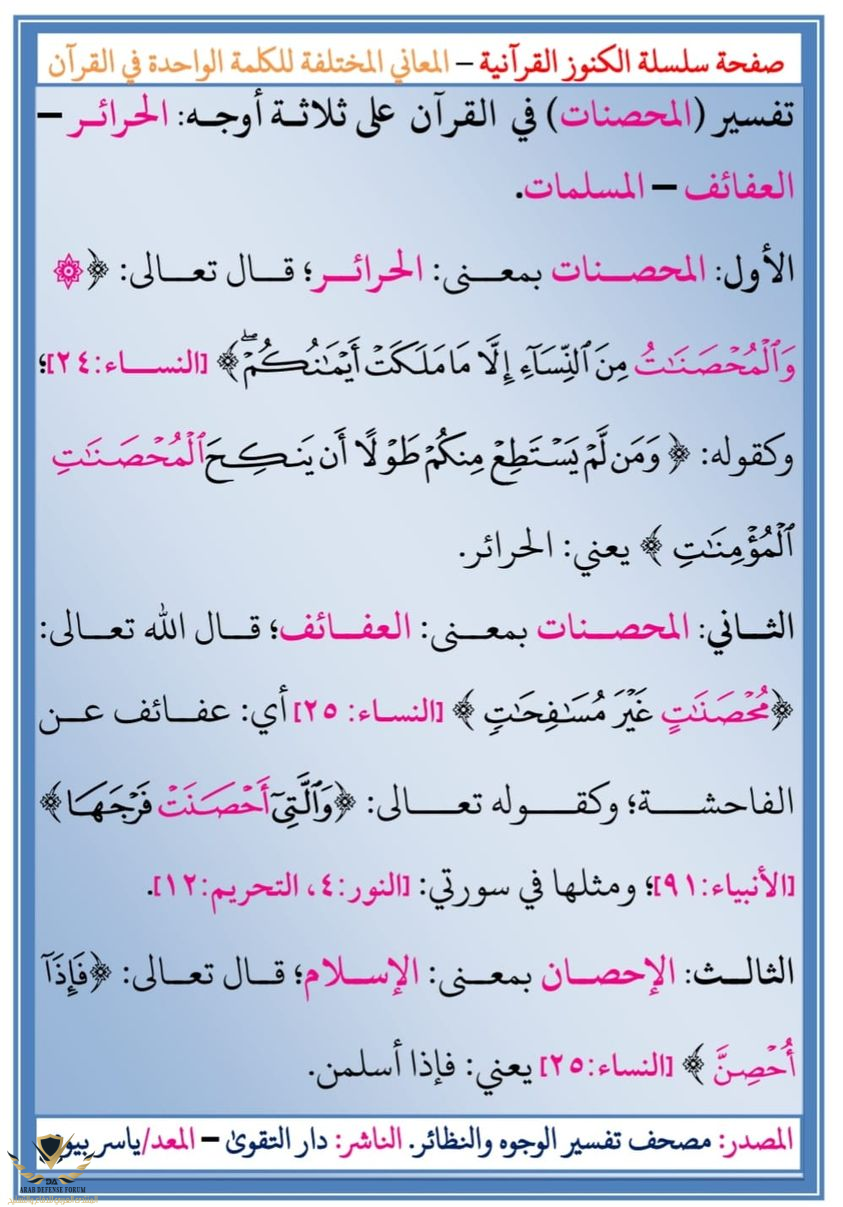 صفحة سلسلة الكنوز القرآنية – المعاني المختلفة للكلمة الواحدة في القرآن
تفسير (المحصنات) في القرآن على ثلاثة أوجه: الحرائر –
العفائف – المسلمات.
الأول: المحصنات بمعنى: الحرائر؛ قال تعالى: ﴿ ۞
وَٱلْمُحْصَنَٰتُ مِنَ ٱلنِّسَآءِ إِلَّا مَا مَلَكَتْ أَيْمَٰنُكُمْ ۖ﴾ [النساء:٢٤]؛
وكقوله: ﴿ وَمَن لَّمْ يَسْتَطِعْ مِنكُمْ طَوْلًا أَن يَنكِحَ ٱلْمُحْصَنَٰتِ
ٱلْمُؤْمِنَٰتِ ﴾ يعني: الحرائر.
الثاني: المحصنات بمعنى: العفائف؛ قال الله تعالى:
﴿مُحْصَنَٰتٍ غَيْرَ مُسَٰفِحَٰتٍ ﴾ [النساء: ٢٥] أي: عفائف عن
الفاحشة؛ وكقوله تعالى: ﴿وَٱلَّتِىٓ أَحْصَنَتْ فَرْجَهَا﴾
[الأنبياء:٩١]؛ ومثلها في سورتي: [النور:٤، التحريم:١٢].
الثالث: الإحصان بمعنى: الإسلام؛ قال تعالى: ﴿فَإِذَآ
أُحْصِنَّ ﴾ [النساء:٢٥] يعني: فإذا أسلمن.
المصدر: مصحف تفسير الوجوه والنظائر. الناشر: دار التقوىٰ – المعد/ياسر
ARAB DEFENSE FORUM